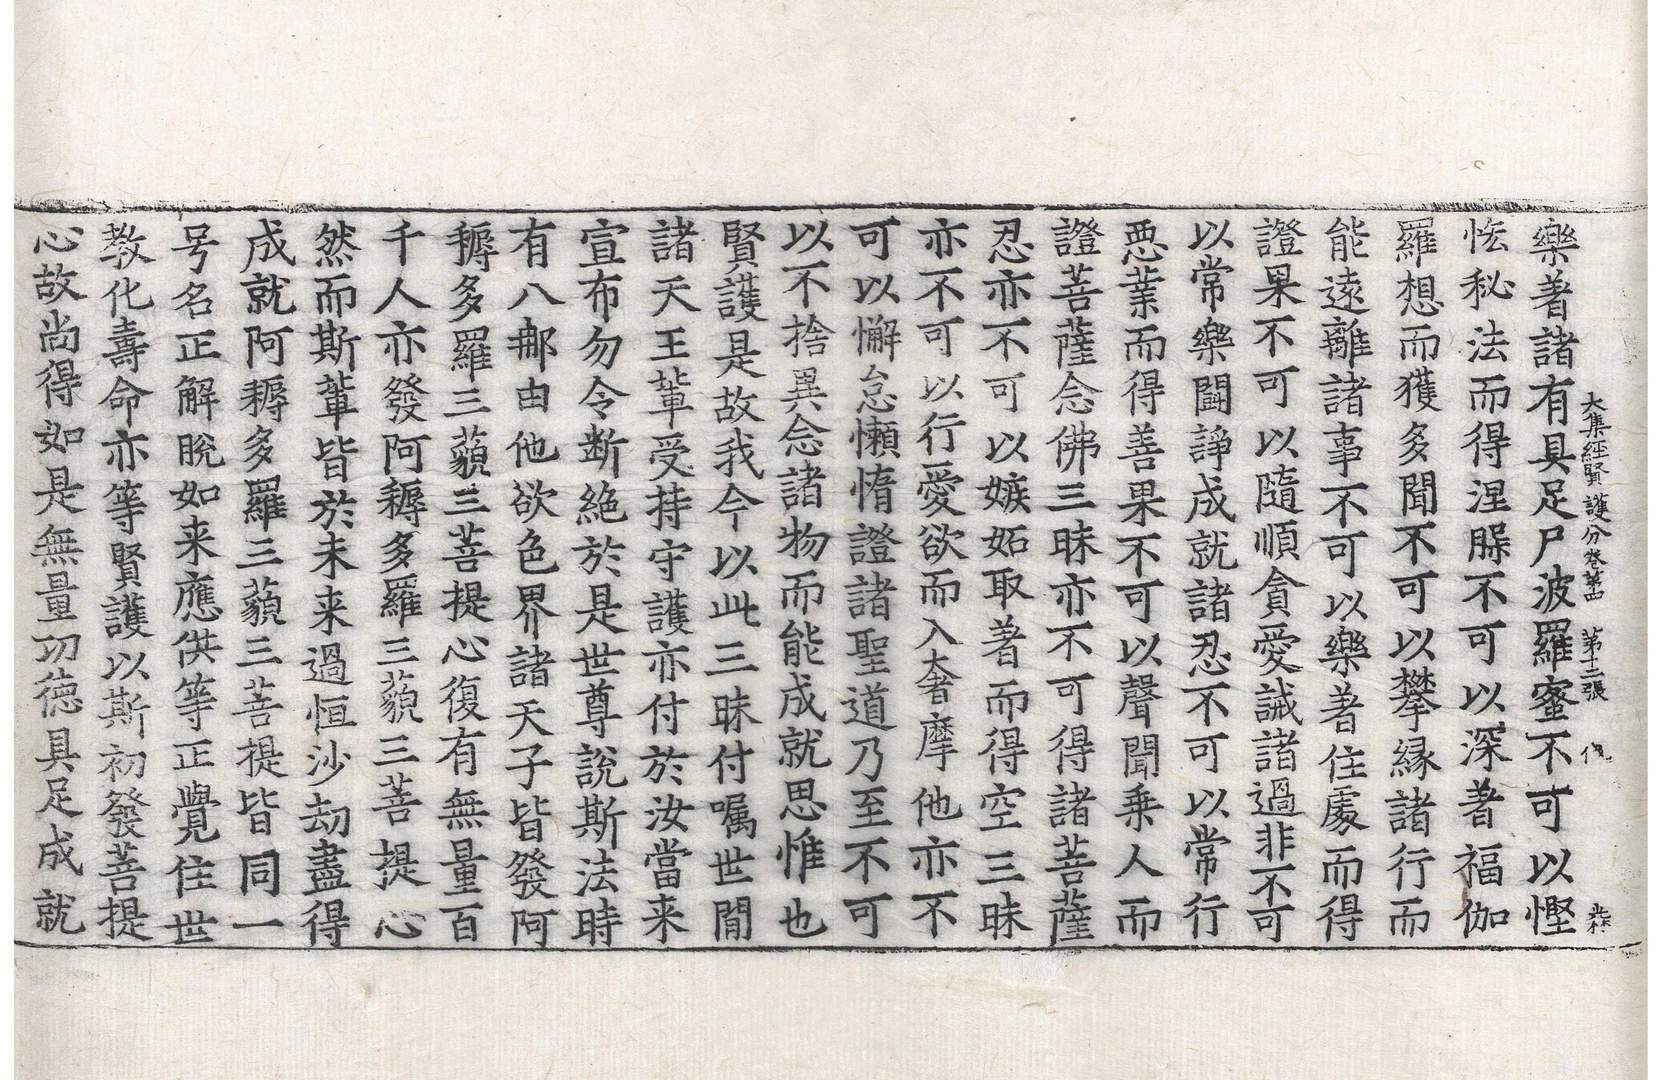 大集經賢護分卷第四 第十二張 伐
樂著諸有具足尸波羅蜜不可以慳
恡秘法而得涅槃不可以深著福伽
羅想而獲多聞不可以攀縁諸行而
能遠離諸事不可以樂著住處而得
證果不可以隨順貪愛誡諸過非不可
以常樂鬪諍成就諸忍不可以常行
惡業而得善果不可以聲聞乗人而
證菩薩念佛三昧亦不可得諸菩薩
忍亦不可以嫉妬取著而得空三昧
亦不可以行愛欲而入奢摩他亦不
可以懈怠懶惰證諸聖道乃至不可
以不捨異念諸物而能成就思惟也
賢護是故我今以此三昧付囑世間
諸天王輩受持守護亦付於汝當来
宣布勿令断絶於是世尊說斯法時
有八𨚗由他欲色界諸天子皆發阿
耨多羅三藐三菩提心復有無量百
千人亦發阿耨多羅三藐三菩提心
然而斯輩皆於未来過恒沙劫盡得
成就阿耨多羅三藐三菩提皆同一
号名正解脫如来應供等正覺住世
教化壽命亦等賢護以斯初發菩提
心故尚得如是無量功德具足成就